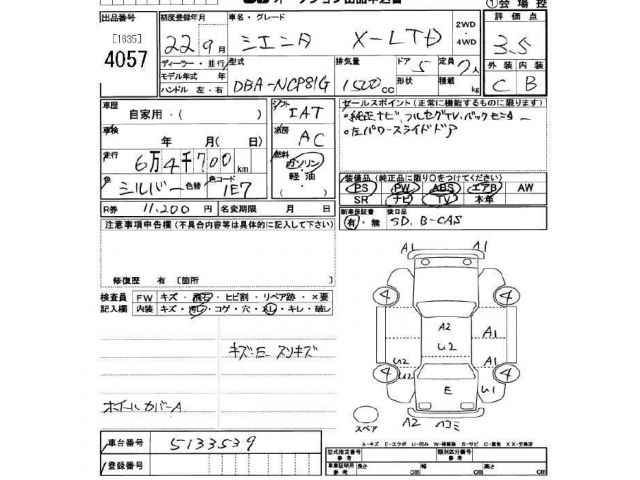 オークション出品申込書
①会場控
出品番号 初度登録年月 車名・グレード 2WD ・4WD 評価点
[1635]
4057
22年9月 シエンタ X-LTD 3.5
ディーラー・並行 型式 排気量 ドア 定員 外装 内装
モデル年式 年 DBA-NCP81G 1500cc 形状 5 積載 7人 C B
ハンドル 左・右 kg
車歴 自家用・( ) シフト IAT
車検 年 月( ) 冷房 AC
走行 6万4千700km 燃料 ガソリン 軽油・
色 シルバー 色替 色コード 1E7
R券 11,200円 名変期限 月 日
セールスポイント(正常に機能するものに限ります)
・純正ナビ、フルセグTV、バックモニター
・左パワースライドドア
装備品(純正品に限り○をつけてください)
PS PW ABS エアB AW
SR ナビ TV 本革
新車保証書 後日品
有・無 SD, B-CAS
注意事項申告欄(不具合内容等は具体的に記入して下さい)
修復歴 有 〔箇所 〕
検査員 FW キズ・飛石・ヒビ割・リペア跡・×要
記入欄 内装 キズ・汚レ・コゲ・穴・スレ・キレ・破レ
キズ・E スリキズ
ホイールカバーA
車台番号 5133539
登録番号
A1 A1
4 4
A2 A1
U2
U2 A1
U2 U1
4 4
E
スペア A2 ハコミ
A-キズ E-エクボ U-凹み W-補修跡 S-サビ C-腐食 XX-交換済
型式指定番号 参考 類別区分番号 参考
車車証明用 参考 長さ cm 幅 cm 高さ cm